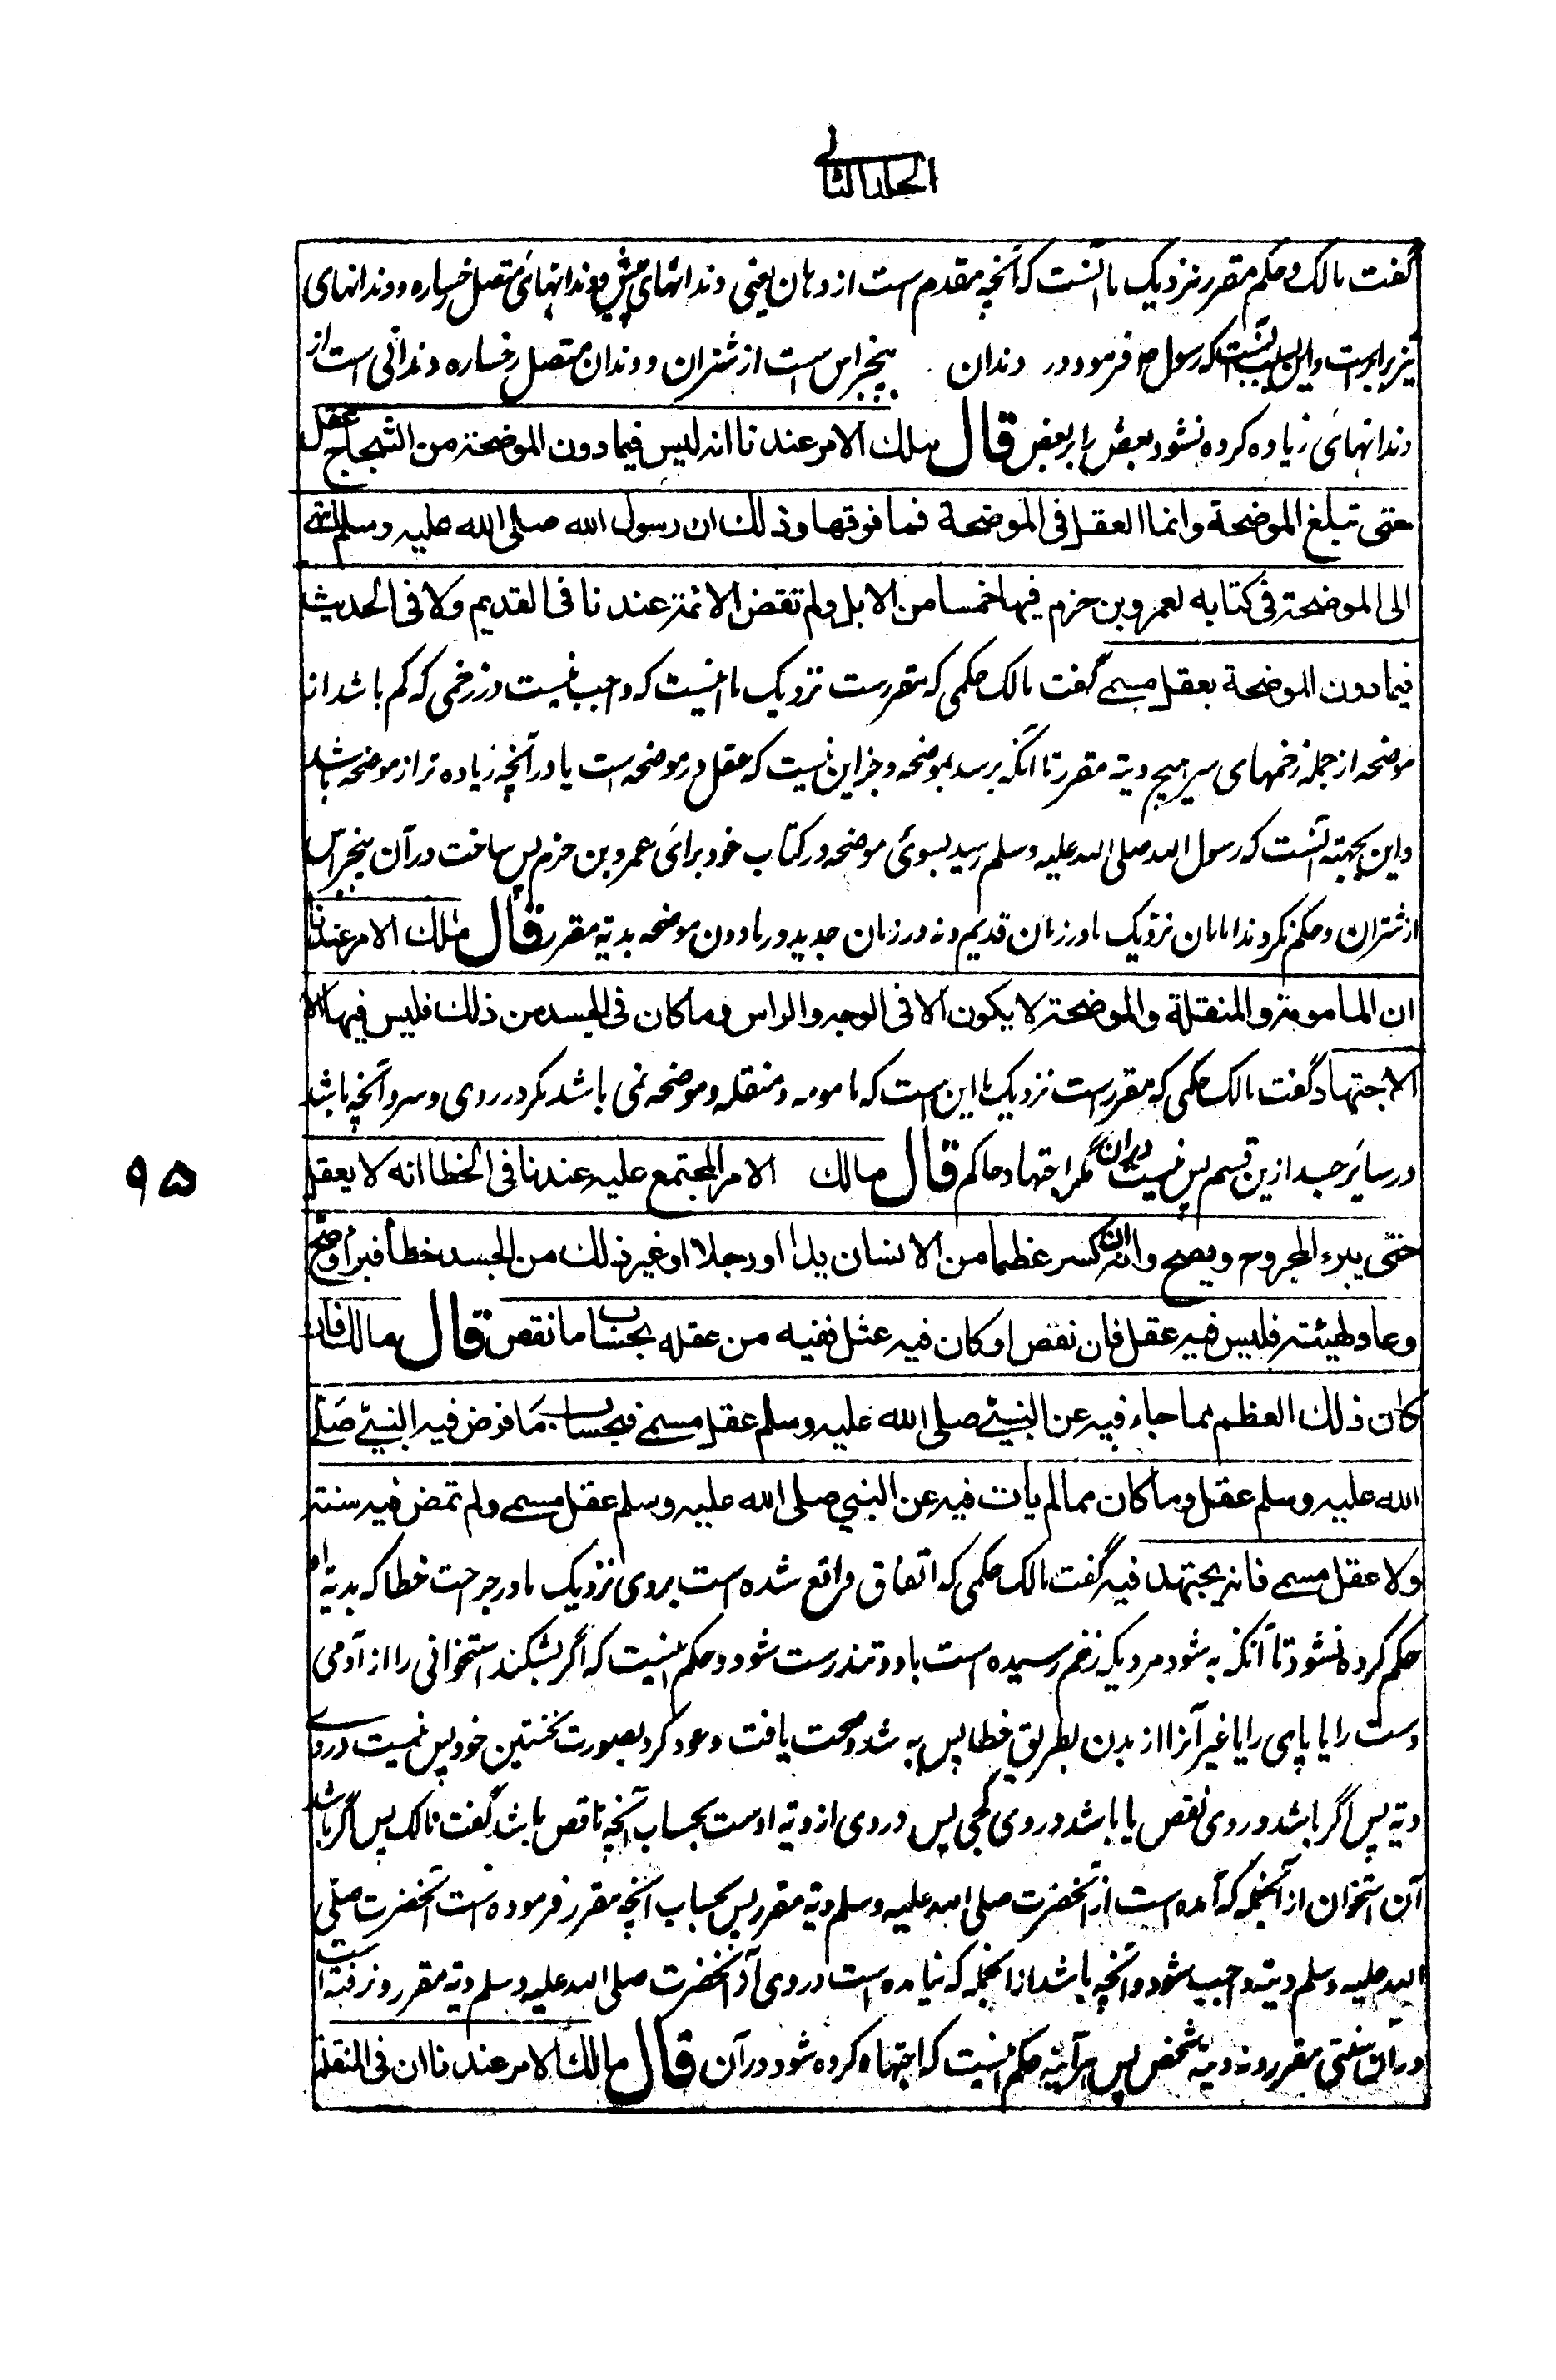 الجلد الثانی
گفت مالک و حکم مقرر نزدیک ما آنست که آنچه مقدم است از دهان یعنی دندانهای پیش و دندانهای متصل رخساره و دندانهای
نیز برابرست و این بسبب آنست که رسول ص فرمود در دندان پنجراس ست از شتران و دندان متصل رخساره دندانی است از
دندانهای زیاده کرده نشود بعض را بر بعض قال ملك الامر عندنا انه ليس فيما دون الموضحة من الشجاج عقل
حتى تبلغ الموضحة وانما العقل فى الموضحة فما فوقها وذلك ان رسول الله صلى الله عليه وسلم انتهى
الى الموضحة فى كتابه لعمرو بن حزم فيها خمسا من الابل ولم تقض الائمة عندنا فى القديم ولا فى الحديث
فيما دون الموضحة بعقل مسمى گفت مالک حکمی که مقررست نزدیک ما اینست که واجب نیست در زخمی که کم باشد از
موضحه از جمله زخمهای سر هیچ دیة مقرر تا آنکه برسد بموضحه و جز این نیست که عقل در موضحه است یا در آنچه زیاده تر از موضحه باشد
و این بجهته آنست که رسول الله صلی الله علیه وسلم رسید بسوئی موضحه در کتاب خود برای عمرو بن حزم پس ساخت در آن پنجراس
از شتران و حکم نکردند امامان نزدیک ما در زمان قدیم و نه در زمان جدید در مادون موضحه بدیة مقرر قال ملك الامر عندنا
ان المامومة والمنقلة والموضحة لا يكون الا فى الوجه والراس وما كان فى الجسد من ذلك فليس فيها الا
الاجتهاد گفت مالک حکمی که مقررست نزدیک ما این است که مامومه و منقله و موضحه نمی باشد مگر در روی و سر و آنچه باشد
در سایر جسد ازین قسم پس نیست در آن مگر اجتهاد حاکم قال مالك الامر المجتمع عليه عندنا فى الخطا انه لا يعقل
حتى يبرء المجروح ويصح وانه ان كسر عظما من الانسان يدا او رجلا او غير ذلك من الجسد خطأ فبرأ وصح
وعاد لهيئته فليس فيه عقل فان نقص او كان فيه عثل ففيه من عقله بحساب ما نقص قال مالك فان
كان ذلك العظم مما جاء فيه عن النبى صلى الله عليه وسلم عقل مسمى فبحساب ما فرض فيه النبى صلى
الله عليه وسلم عقل وما كان مما لم يات فيه عن النبي صلى الله عليه وسلم عقل مسمى ولم تمض فيه سنة
ولا عقل مسمى فانه يجتهد فيه گفت مالک حکمی که اتفاق واقع شده است بروی نزدیک ما در جراحت خطا که بدیة او
حکم کرده نشود تا آنکه به شود مردیکه زخم رسیده است باو و تندرست شود و حکم اینست که اگر بشکند استخوانی را از آدمی
دست را یا پای را یا غیر آنرا از بدن بطریق خطا پس به شد و صحت یافت و عود کرد بصورت نخستین خود پس نیست در وی
دیة پس اگر باشد در وی نقص یا باشد در وی کجی پس در وی از دیة اوست بحساب آنچه ناقص باشد گفت مالک پس اگر باشد
آن استخوان از آنجمله که آمده است از آنحضرت صلی الله علیه وسلم دیة مقرر پس بحساب آنچه مقرر فرموده است آنحضرت صلی
الله علیه وسلم دیة واجب شود و آنچه باشد از آنجمله که نیامده است در وی از آنحضرت صلی الله علیه وسلم دیة مقرر و نرفته است
در آن سنتی مقرر و نه دیة مشخص پس هرآینه حکم اینست که اجتهاد کرده شود در آن قال مالك الامر عندنا ان فى المنقلة
۹۵